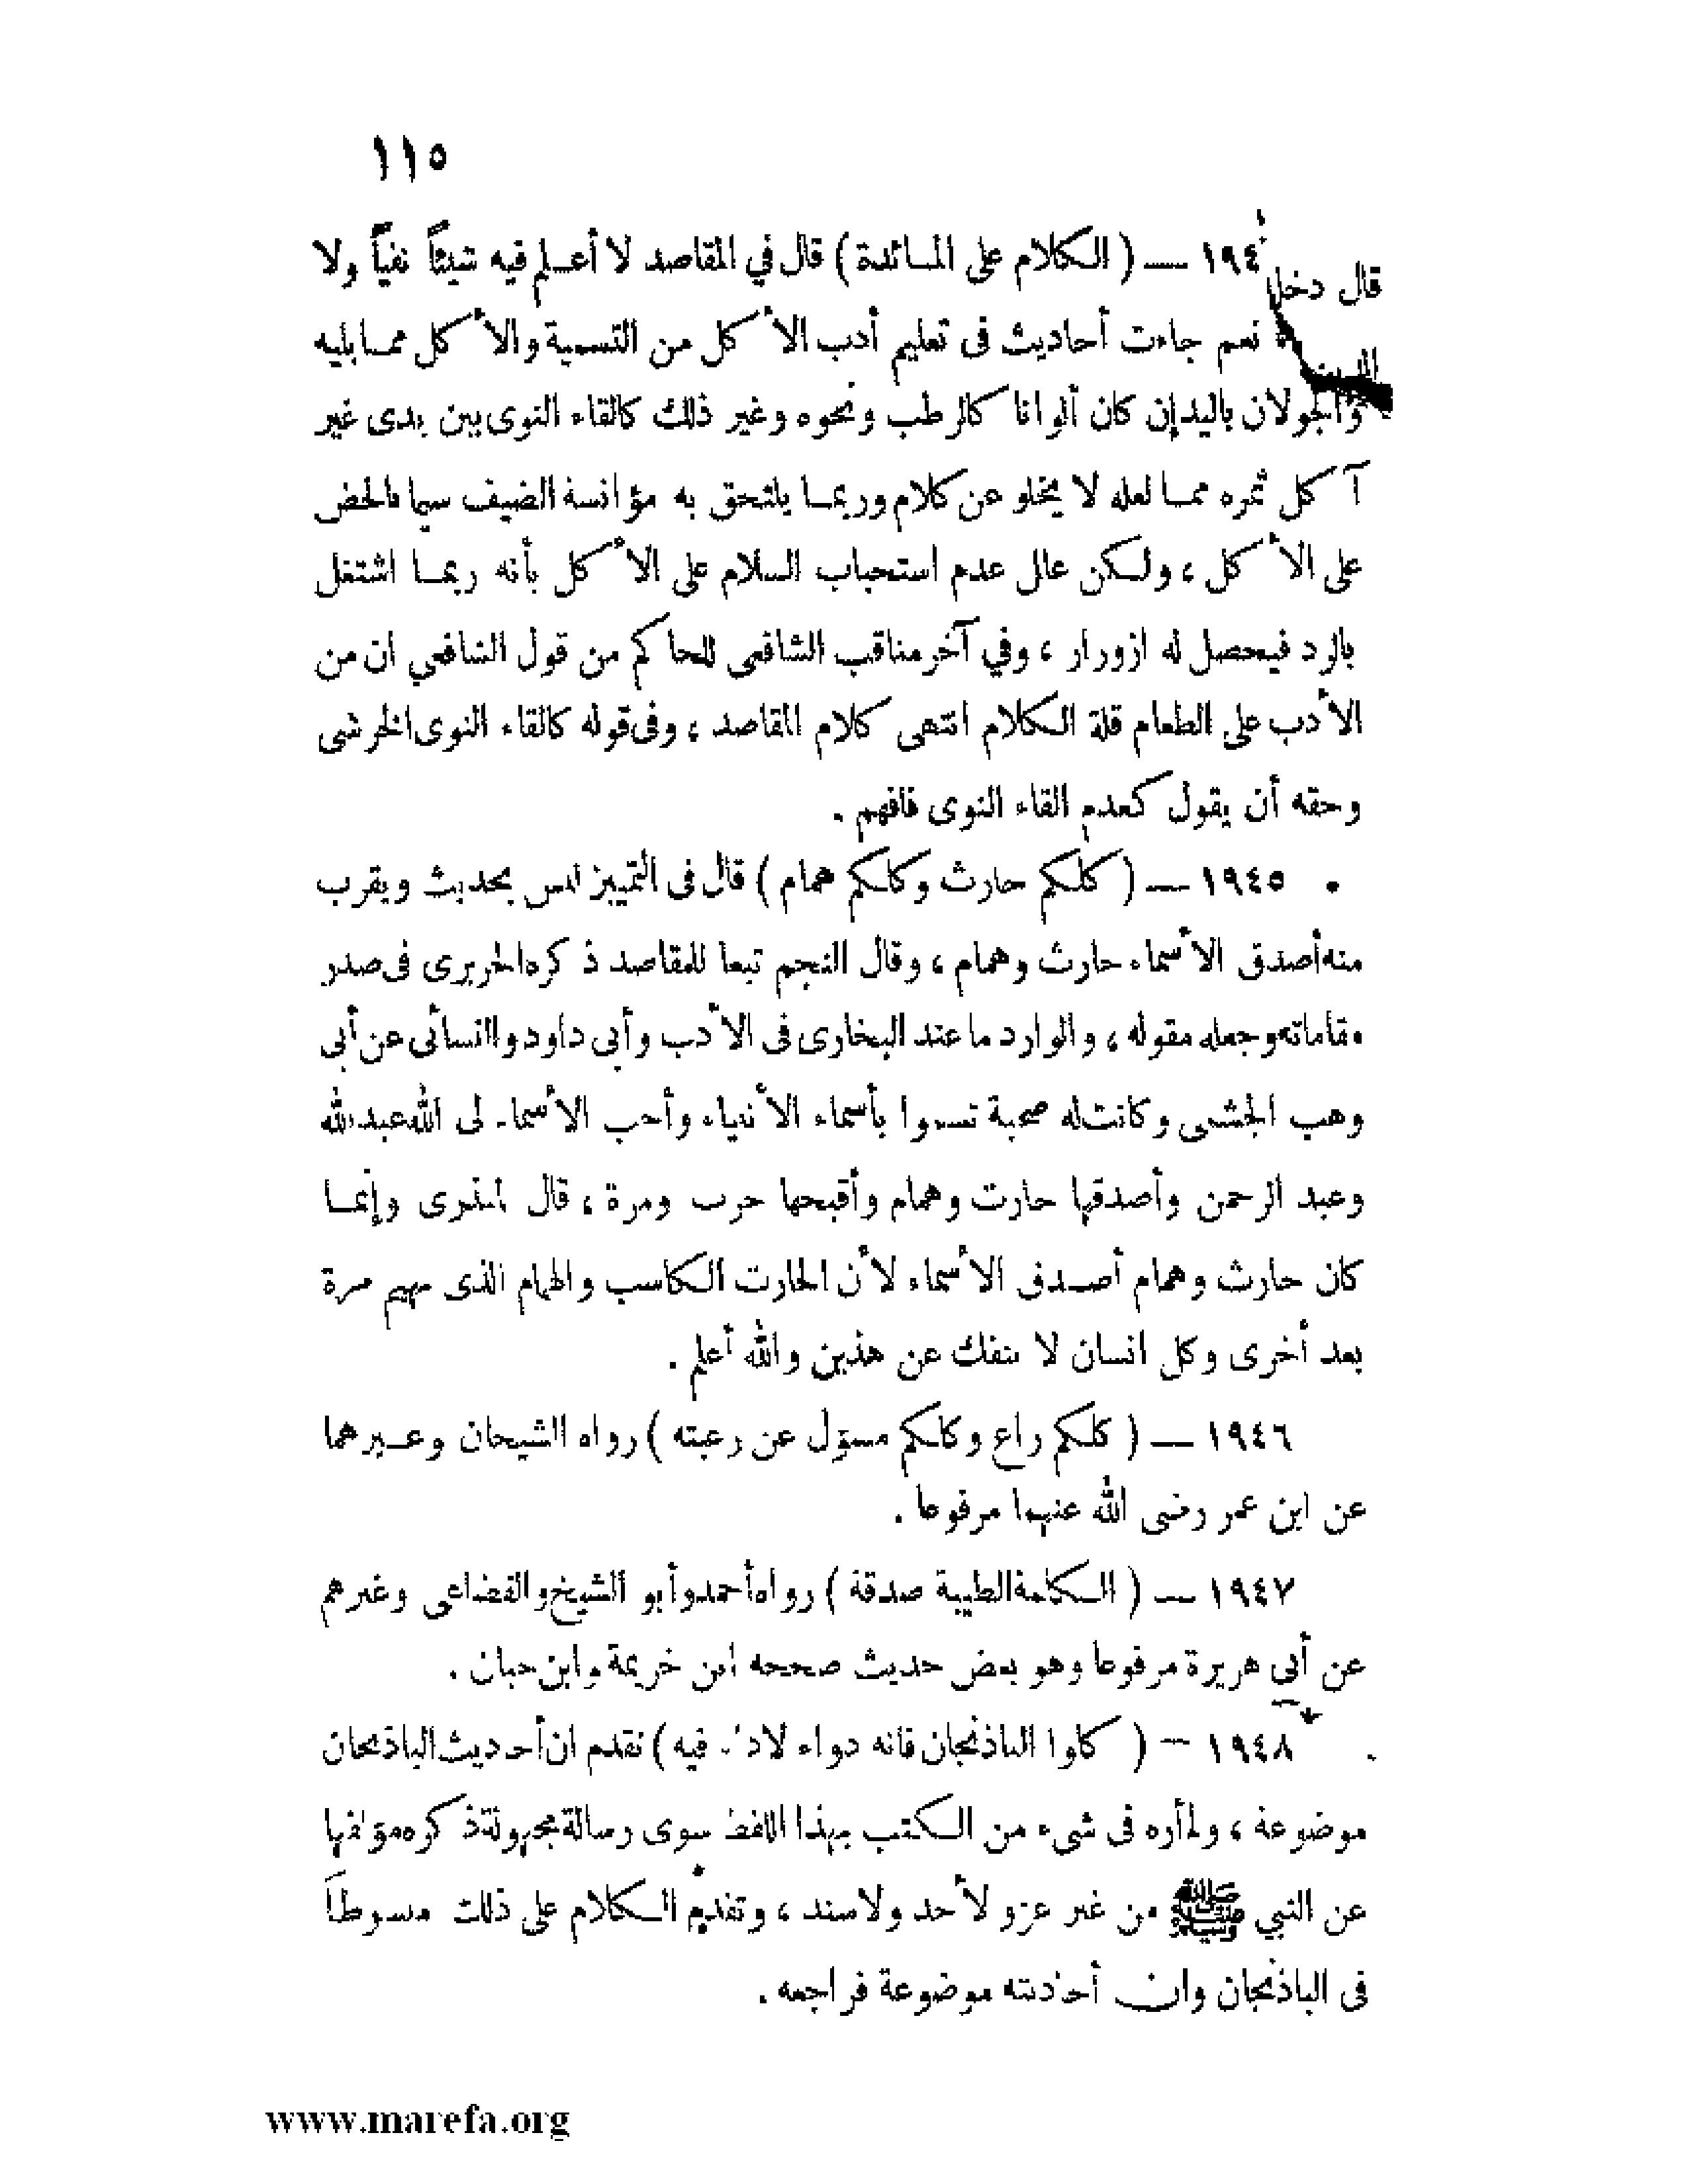 ١١٥
قال دخل
١٩٤ — ( الكلام على المائدة ) قال في المقاصد لا أعلم فيه شيئاً نفياً ولا
نعم جاءت أحاديث فى تعليم أدب الأكل من التسمية والأكل مما يليه
والجولان باليد إن كان ألوانا كالرطب ونحوه وغير ذلك كالقاء النوى بين يدى غير
آكل ثمره مما لعله لا يخلو عن كلام وربما يلتحق به مؤانسة الضيف سيما بالحض
على الأكل ، ولكن علل عدم استحباب السلام على الأكل بأنه ربما اشتغل
بالرد فيحصل له ازورار ، وفي آخر مناقب الشافعى للحاكم من قول الشافعي ان من
الأدب على الطعام قلة الكلام انتهى كلام المقاصد ، وفى قوله كالقاء النوى الخ شى
وحقه أن يقول كعدم القاء النوى فافهم .
١٩٤٥ — ( كلكم حارث وكلكم همام ) قال فى التمييز ليس بحديث ويقرب
منه أصدق الأسماء حارث وهمام ، وقال النجم تبعا للمقاصد ذكره الحريرى فى صدر
مقاماته وجعله مقوله ، والوارد ما عند البخارى فى الأدب وأبي داود والنسائى عن أبى
وهب الجشمى وكانت له صحبة تسموا بأسماء الأنبياء وأحب الأسماء لى الله عبد الله
وعبد الرحمن وأصدقها حارث وهمام وأقبحها حرب ومرة ، قال المنذرى وإنما
كان حارث وهمام أصدق الأسماء لأن الحارث الكاسب والهمام الذى يهم مرة
بعد أخرى وكل انسان لا ينفك عن هذين والله أعلم .
١٩٤٦ — ( كلكم راع وكلكم مسؤل عن رعيته ) رواه الشيخان وغيرهما
عن ابن عمر رضى الله عنهما مرفوعا .
١٩٤٧ — ( الكلمة الطيبة صدقة ) رواه أحمد وأبو الشيخ والقضاعى وغيرهم
عن أبى هريرة مرفوعا وهو بعض حديث صححه ابن خزيمة وابن حبان .
١٩٤٨ — ( كلوا الباذنجان فانه دواء لا داء فيه ) تقدم ان أحاديث الباذنجان
موضوعة ، ولم أره فى شىء من الكتب بهذا اللفظ سوى رسالة مجهولة ذكره مؤلفها
عن النبي ﷺ من غير عزو لأحد ولا سند ، وتقدم الكلام على ذلك مبسوطاً
فى الباذنجان وان أحاديثه موضوعة فراجعه .
www.marefa.org